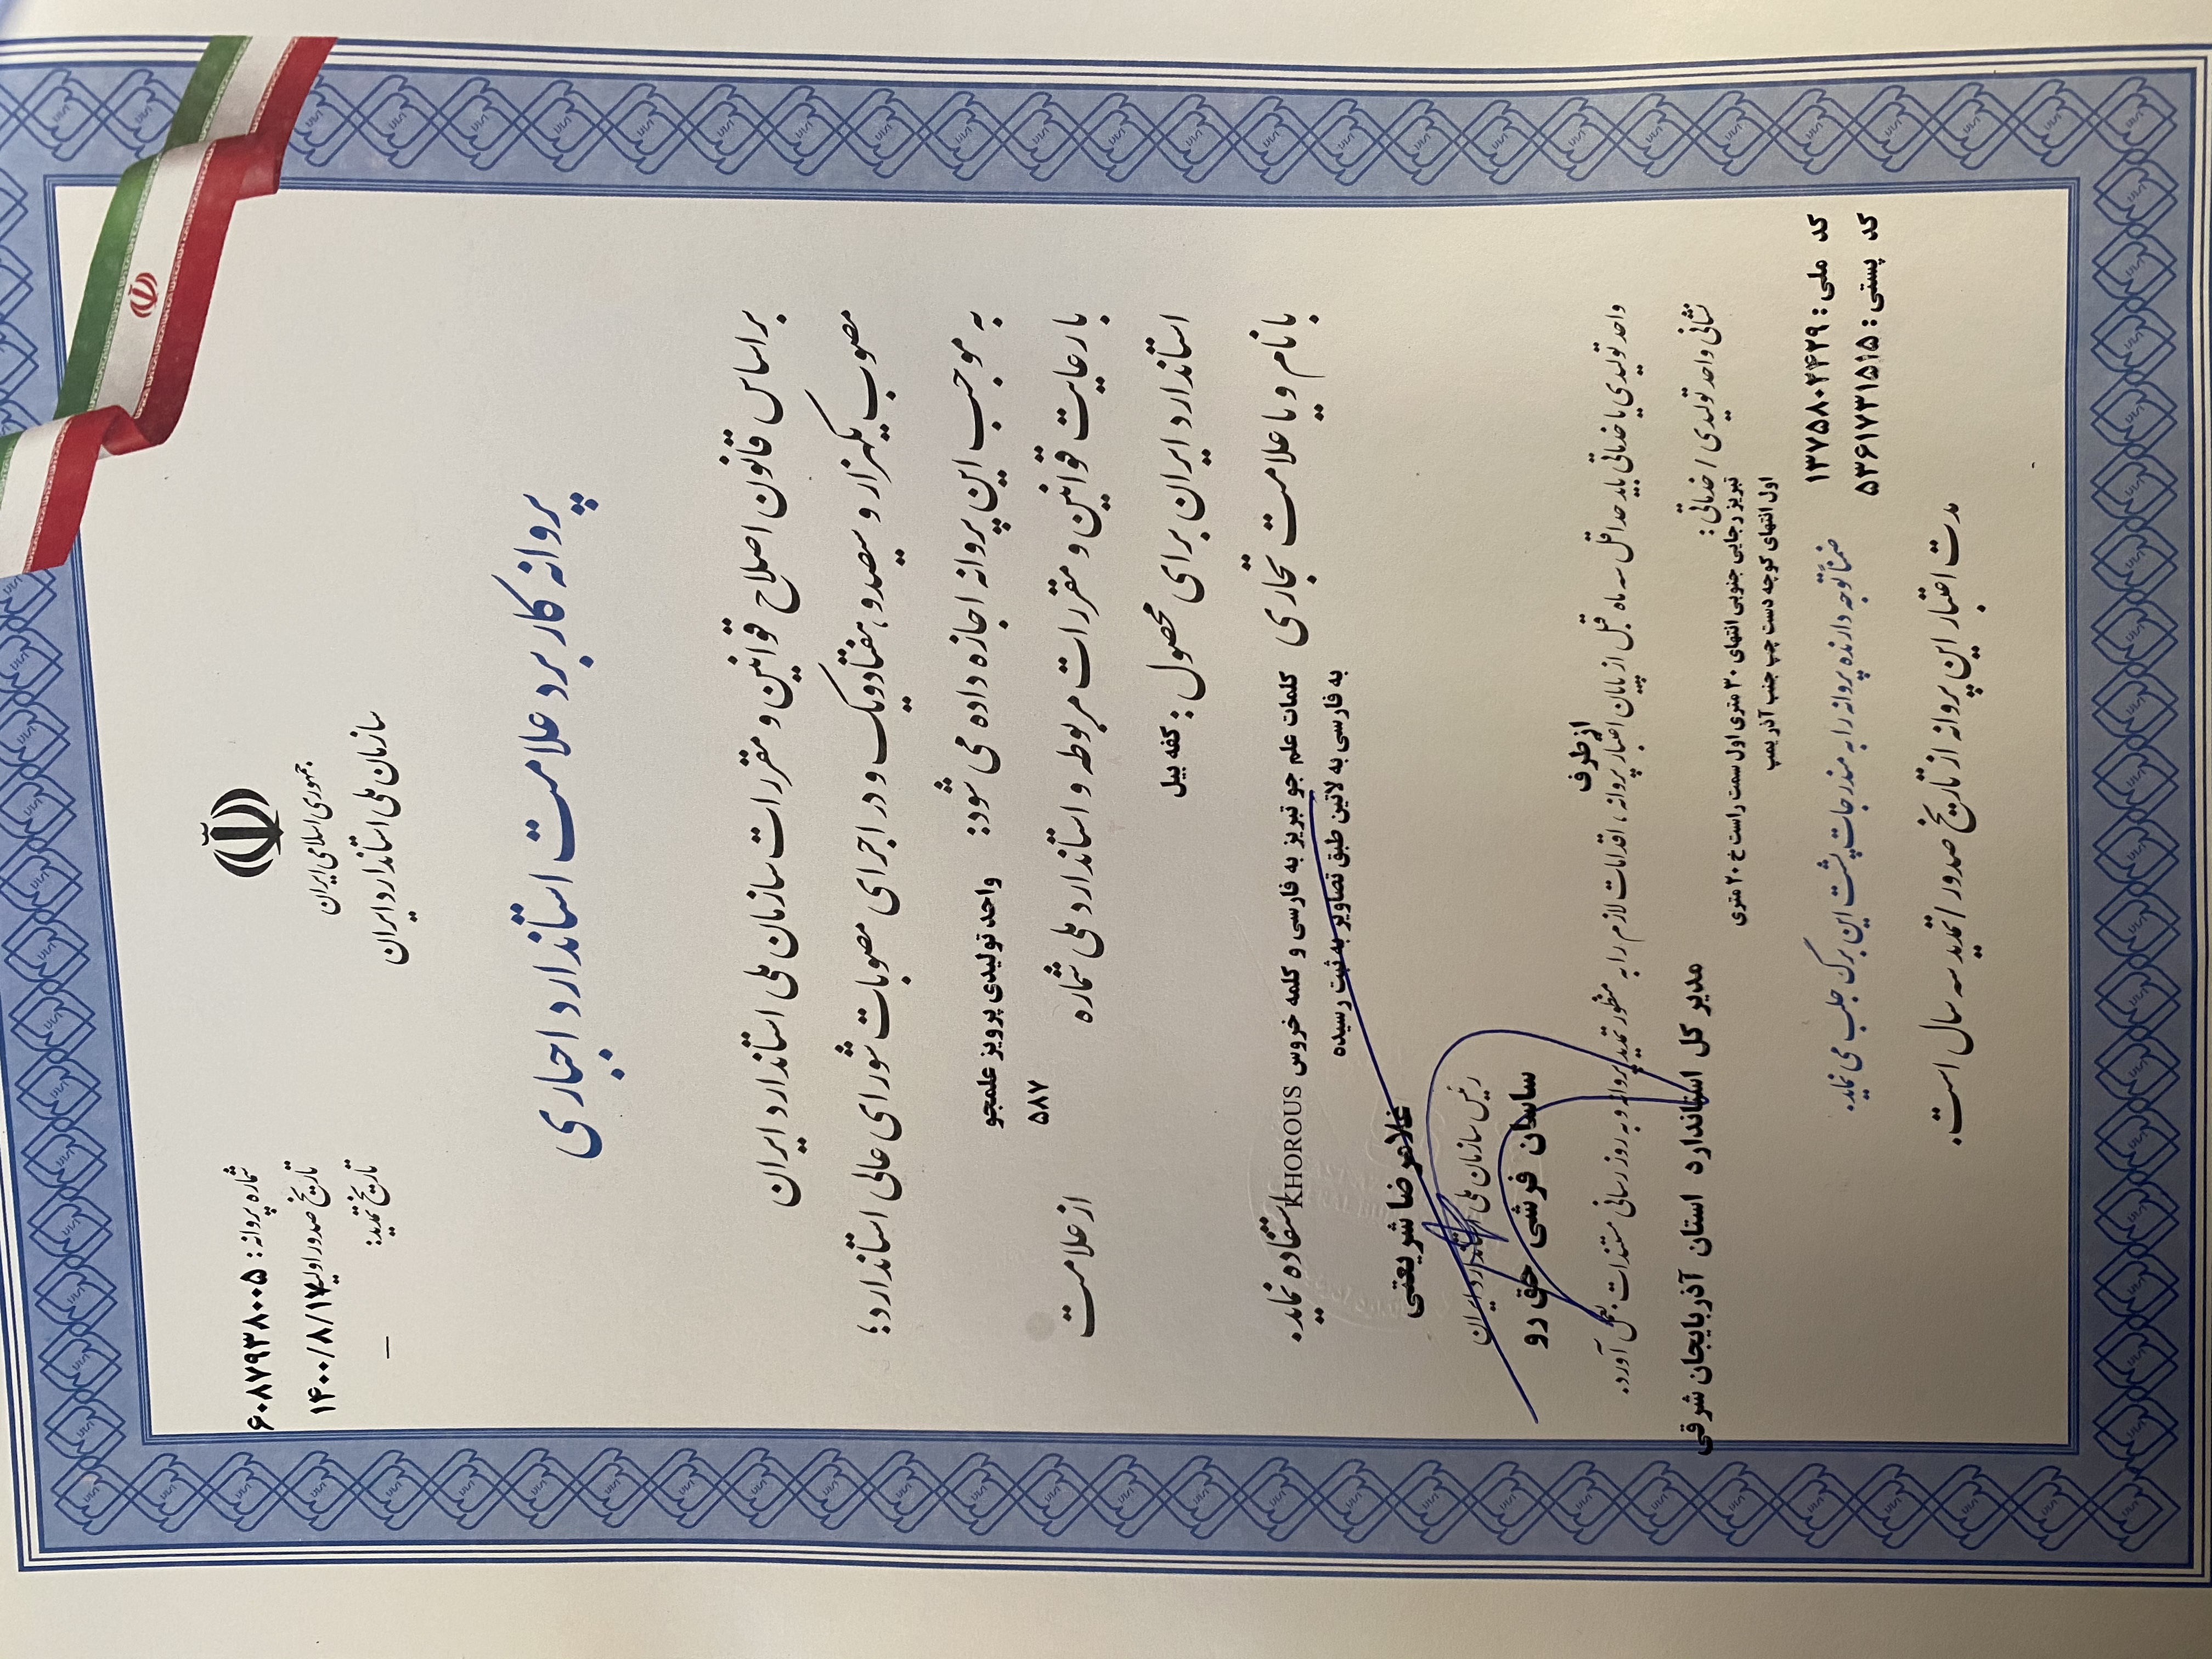 جمهوری اسلامی ایران
سازمان ملی استاندارد ایران
شماره پروانه: ۶۰۸۷۹۳۸۰۰۵
تاریخ صدور اولیه: ۱۴۰۰/۸/۱۲
تاریخ تمدید: –
پروانه کاربرد علامت استاندارد اجباری
براساس قانون اصلاح قوانین و مقررات سازمان ملی استاندارد ایران
مصوب یکهزار و سیصد و هفتاد و یک و در اجرای مصوبات شورای عالی استاندارد؛
به موجب این پروانه اجازه داده می شود: واحد تولیدی پرویز علمجو
با رعایت قوانین و مقررات مربوطه و استاندارد ملی شماره ۵۸۷ از علامت
استاندارد ایران برای محصول: کفه بیل
با نام و یا علامت تجاری کلمات علم جو تبریز به فارسی و کلمه خروس KHOROUS استفاده نماید.
به فارسی به لاتین طبق تصاویر به ثبت رسیده
غلامرضا شریعتی
رئیس سازمان ملی استاندارد ایران
از طرف
ساسان فرشی حق رو
واحد تولیدی یا خدماتی باید حداقل سه ماه قبل از پایان اعتبار پروانه، اقدامات لازم را به منظور تمدید پروانه و به روز رسانی مستندات بعمل آورد.
مدیر کل استاندارد استان آذربایجان شرقی
نشانی واحد تولیدی / خدماتی:
تبریز رجایی جنوبی انتهای ۳۰ متری اول سمت راست خ ۲۰ متری
اول انتهای کوچه دست چپ جنب آذر پمپ
کد ملی: ۱۳۷۵۸۰۲۴۲۹
ضمناً توجه دارنده پروانه را به مندرجات پشت این برگ جلب می نماید.
کد پستی: ۵۳۶۱۷۳۱۵۱۵
مدت اعتبار این پروانه از تاریخ صدور / تمدید سه سال است.